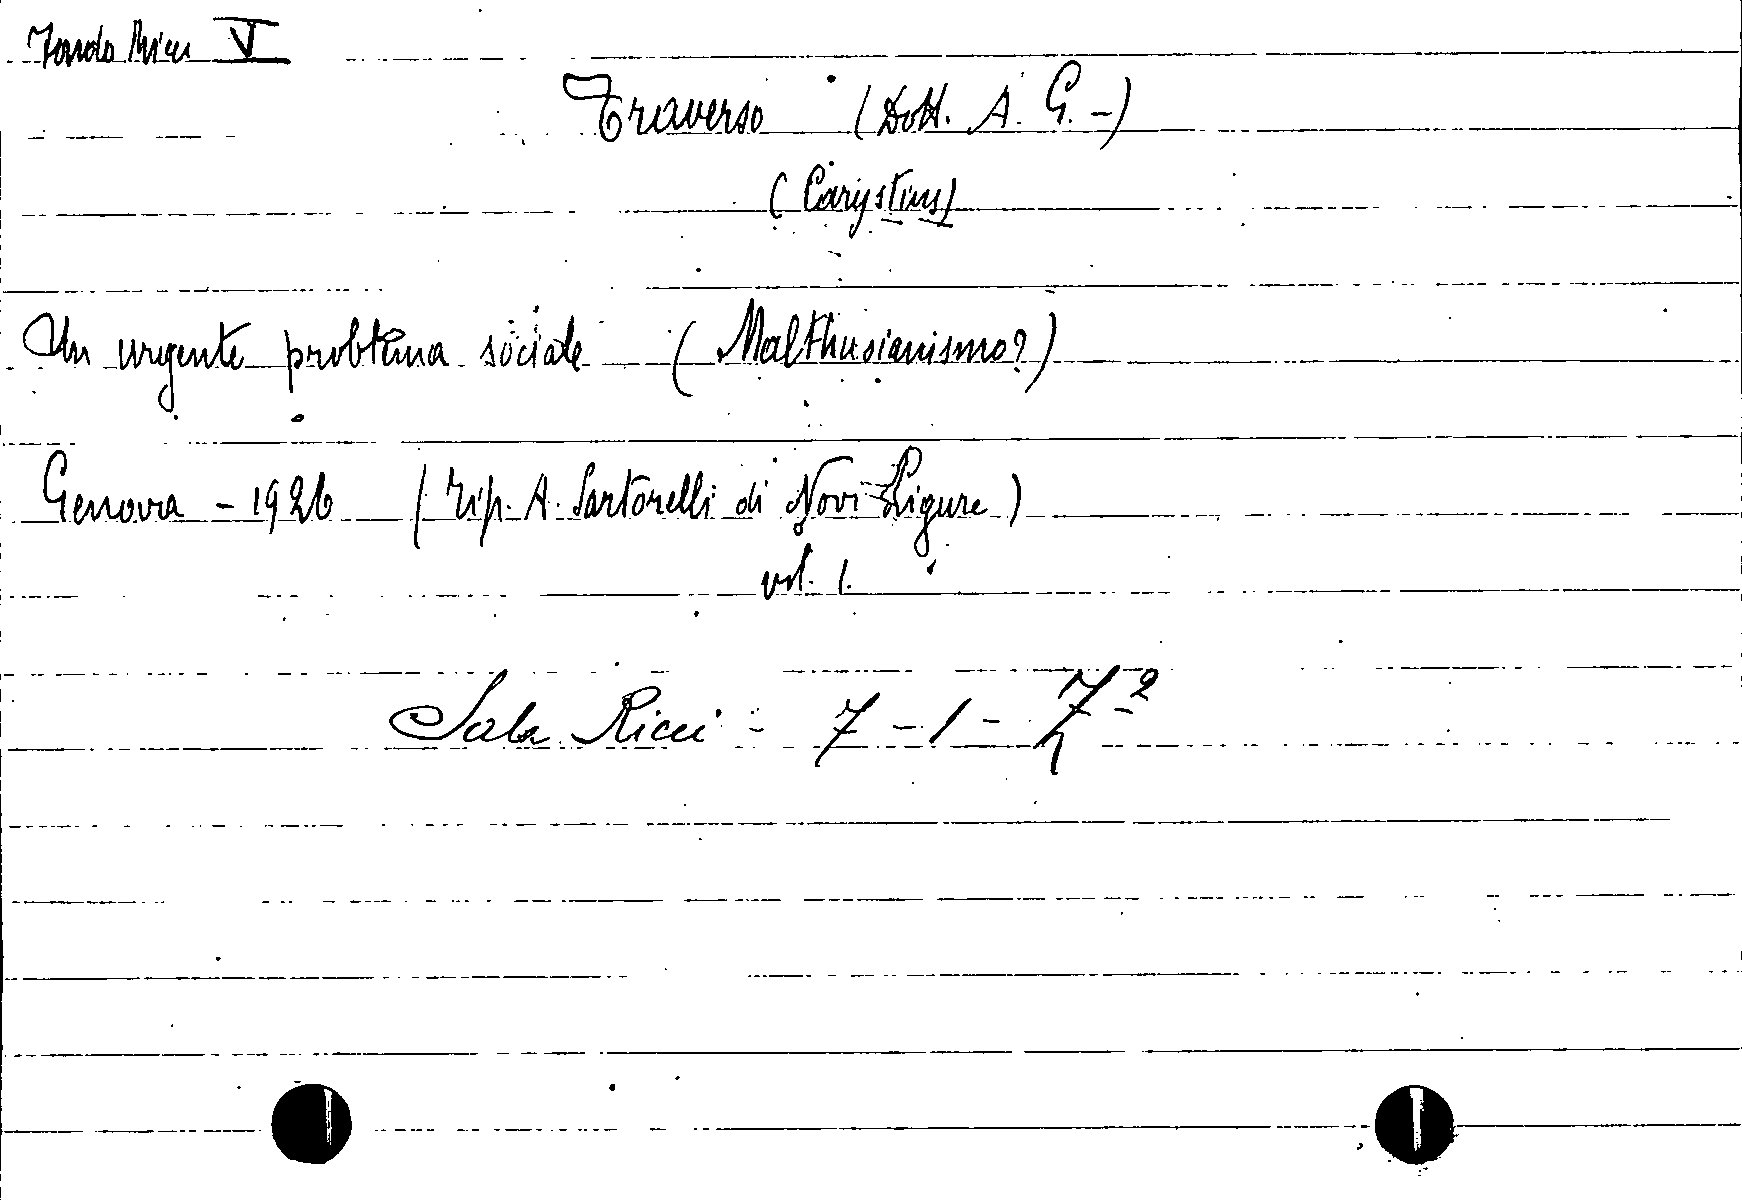 Fondo Ricci V
Traverso (Dott. A. G. -)
(Carystius)
Un urgente problema sociale (Malthusianismo?)
Genova - 1926 (tip. A. Sartorelli di Novi Ligure)
vol. 1.
Sala Ricci - 7 - 1 - 7²